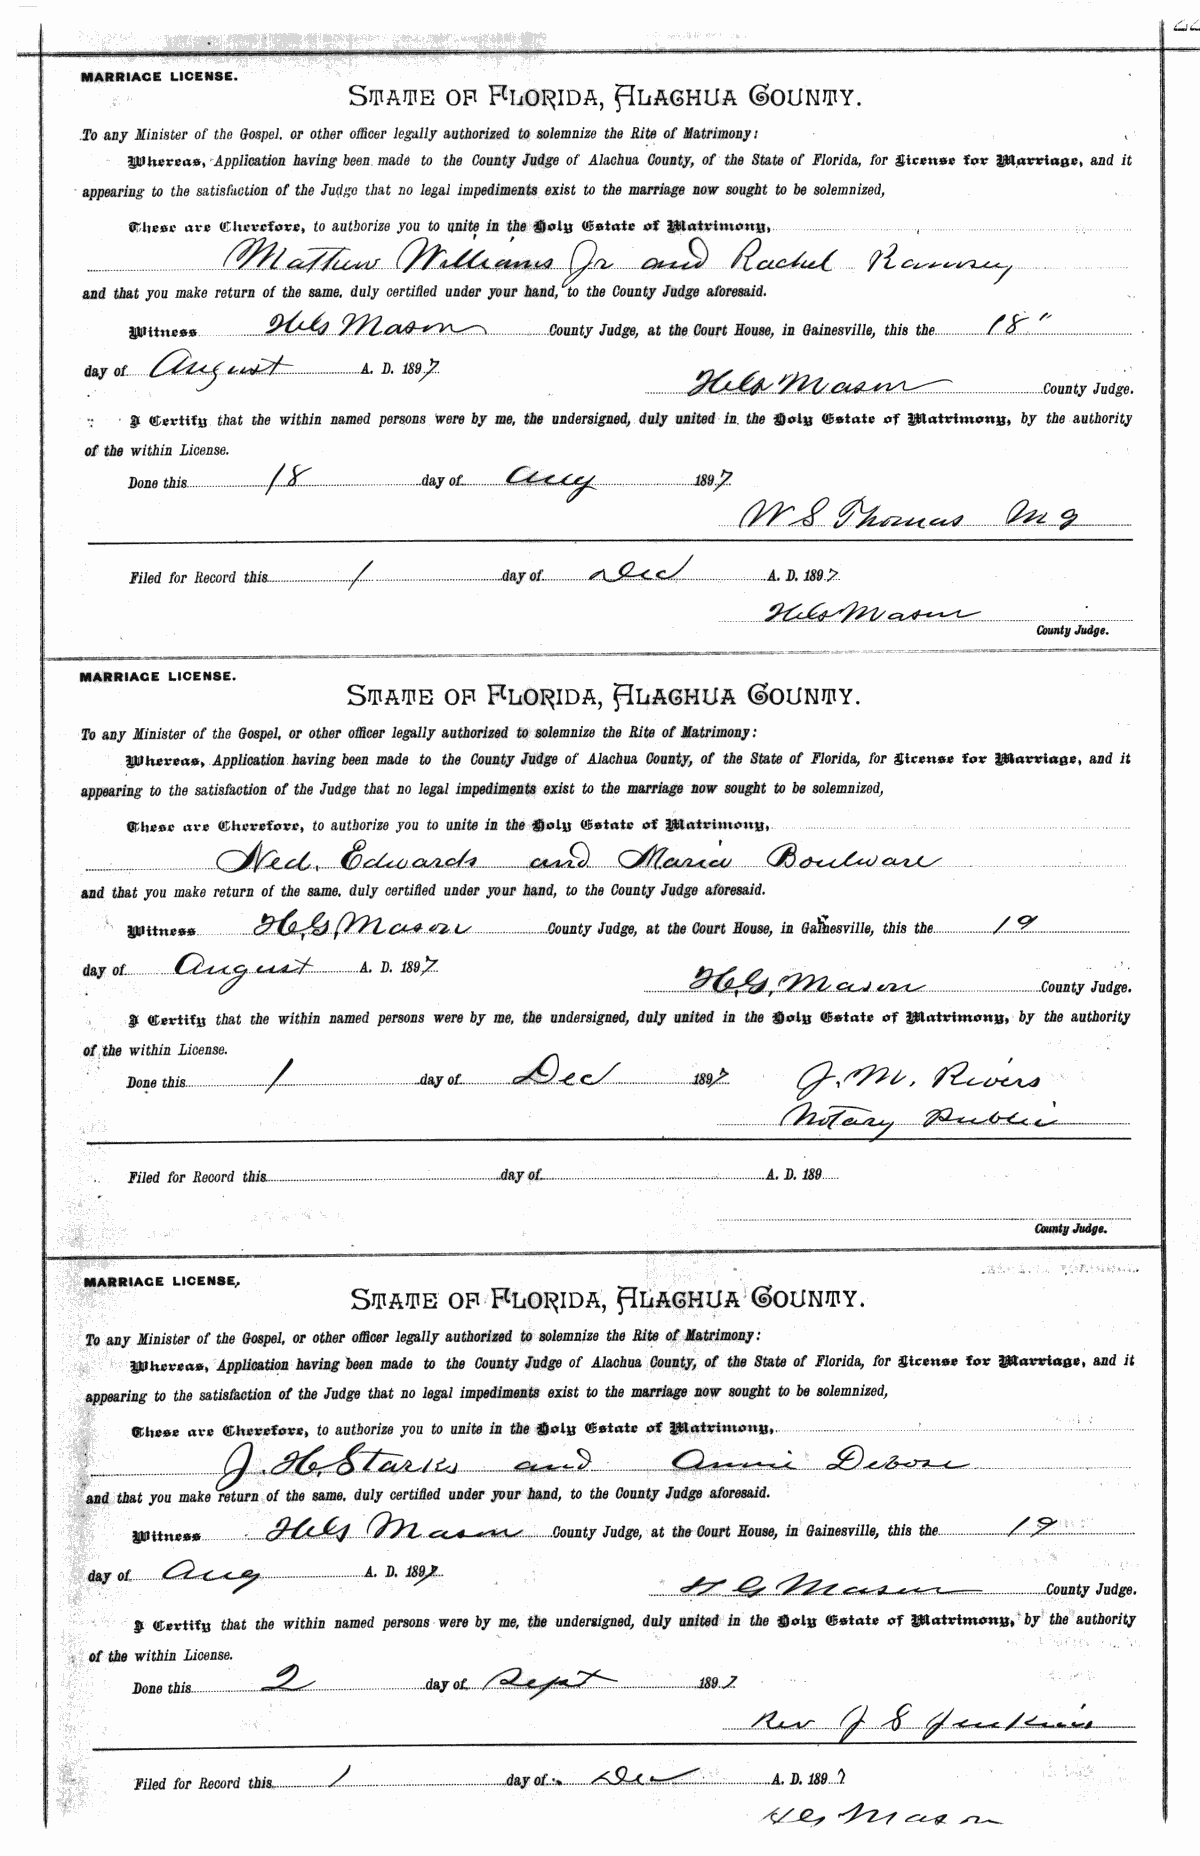 MARRIAGE LICENSE.
STATE OF FLORIDA, ALACHUA COUNTY.
To any Minister of the Gospel, or other officer legally authorized to solemnize the Rite of Matrimony:
Whereas, Application having been made to the County Judge of Alachua County, of the State of Florida, for License for Marriage, and it
appearing to the satisfaction of the Judge that no legal impediments exist to the marriage now sought to be solemnized,
These are Therefore, to authorize you to unite in the Holy Estate of Matrimony,
Mathew Williams Jr and Rachel Ramsey
and that you make return of the same, duly certified under your hand, to the County Judge aforesaid.
Witness H G Mason County Judge, at the Court House, in Gainesville, this the 18"
day of August A. D. 1897
H G Mason County Judge.
I Certify that the within named persons were by me, the undersigned, duly united in the Holy Estate of Matrimony, by the authority
of the within License.
Done this 18 day of Aug 1897
W S Thomas M G
Filed for Record this 1 day of Dec A. D. 1897
H G Mason
County Judge.
MARRIAGE LICENSE.
STATE OF FLORIDA, ALACHUA COUNTY.
To any Minister of the Gospel, or other officer legally authorized to solemnize the Rite of Matrimony:
Whereas, Application having been made to the County Judge of Alachua County, of the State of Florida, for License for Marriage, and it
appearing to the satisfaction of the Judge that no legal impediments exist to the marriage now sought to be solemnized,
These are Therefore, to authorize you to unite in the Holy Estate of Matrimony,
Ned. Edwards and Maria Boulware
and that you make return of the same, duly certified under your hand, to the County Judge aforesaid.
Witness H.G. Mason County Judge, at the Court House, in Gainesville, this the 19
day of August A. D. 1897
H.G. Mason County Judge.
I Certify that the within named persons were by me, the undersigned, duly united in the Holy Estate of Matrimony, by the authority
of the within License.
Done this 1 day of Dec 1897 J. M. Rivers
Notary Public
Filed for Record this day of A. D. 189
County Judge.
MARRIAGE LICENSE,
STATE OF FLORIDA, ALACHUA COUNTY.
To any Minister of the Gospel, or other officer legally authorized to solemnize the Rite of Matrimony:
Whereas, Application having been made to the County Judge of Alachua County, of the State of Florida, for License for Marriage, and it
appearing to the satisfaction of the Judge that no legal impediments exist to the marriage now sought to be solemnized,
These are Therefore, to authorize you to unite in the Holy Estate of Matrimony,
J. H. Starks and Annie Debose
and that you make return of the same, duly certified under your hand, to the County Judge aforesaid.
Witness H G Mason County Judge, at the Court House, in Gainesville, this the 19
day of Aug A. D. 1897
H G Mason County Judge.
I Certify that the within named persons were by me, the undersigned, duly united in the Holy Estate of Matrimony, by the authority
of the within License.
Done this 2 day of Sept 1897
Rev J S Jenkins
Filed for Record this 1 day of Dec A. D. 1897
H G Mason